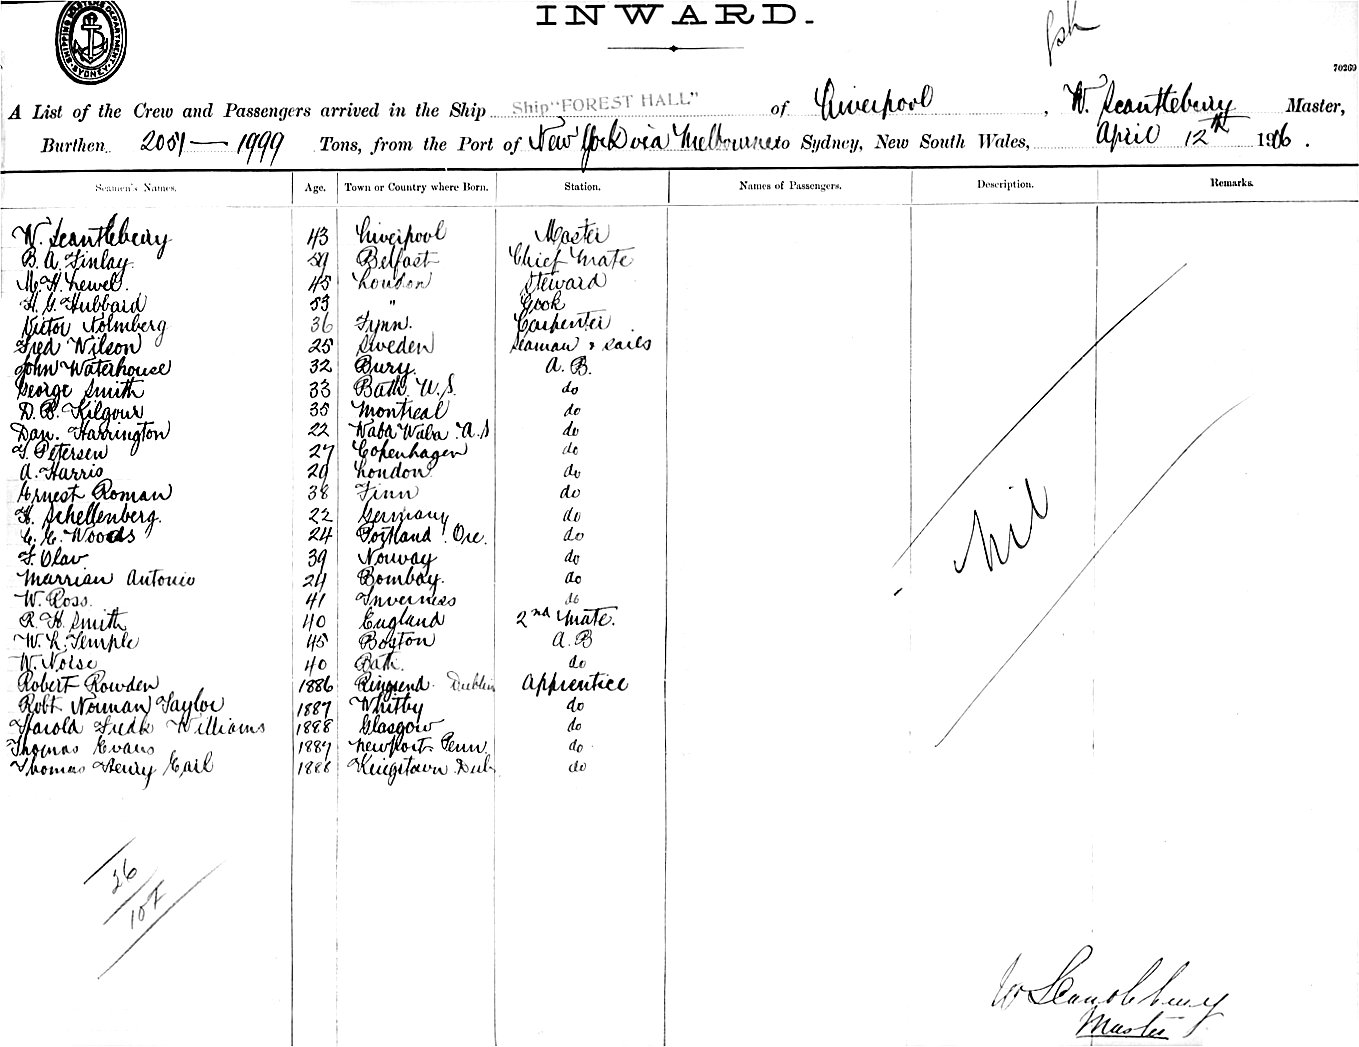 SHIPPING MASTERS DEPARTMENT. SYDNEY.
INWARD.
70269
A List of the Crew and Passengers arrived in the Ship Ship "FOREST HALL" of Liverpool, W. Scantlebury Master,
Burthen 2051 — 1999 Tons, from the Port of New York via Melbourne to Sydney, New South Wales, April 12th 1906.
Seamen's Names. Age. Town or Country where Born. Station. Names of Passengers. Description. Remarks.
W. Scantlebury 43 Liverpool Master
B. A. Finlay 59 Belfast Chief Mate
M. H. Lewel. 45 London Steward
H. G. Hubbard 53 " Cook
Victor Holmberg 36 Fynn. Carpenter
Fred Wilson 25 Sweden Seaman & sails
John Waterhouse 32 Bury. A.B.
George Smith 33 Bath. U.S. do
D. B. Kilgour 35 Montreal do
Dan. Harrington 22 Waba Waba A.S do
Petersen 27 Copenhagen do
A. Harris 29 London do
Ernest Roman 38 Finn do
H. Schellenberg. 22 Germany do
C. C. Woods 24 Portland Ore. do
F. Olav 39 Norway do
Marrian Antonio 24 Bombay. do
W. Ross. 41 Inverness do
R. H. Smith 40 England 2nd Mate.
W. L. Temple 45 Boston A.B
W. Noise 40 Bath. do
Robert Rowden 1886 Ringsend Dublin Apprentice
Robt Norman Taylor 1887 Whitby do
Harold Fredk Williams 1888 Glasgow do
Thomas Evans 1887 Newport Penn. do
Thomas Henry Earl 1888 Kingstown Dub do
Nil
26
107
W Scantlebury
Master